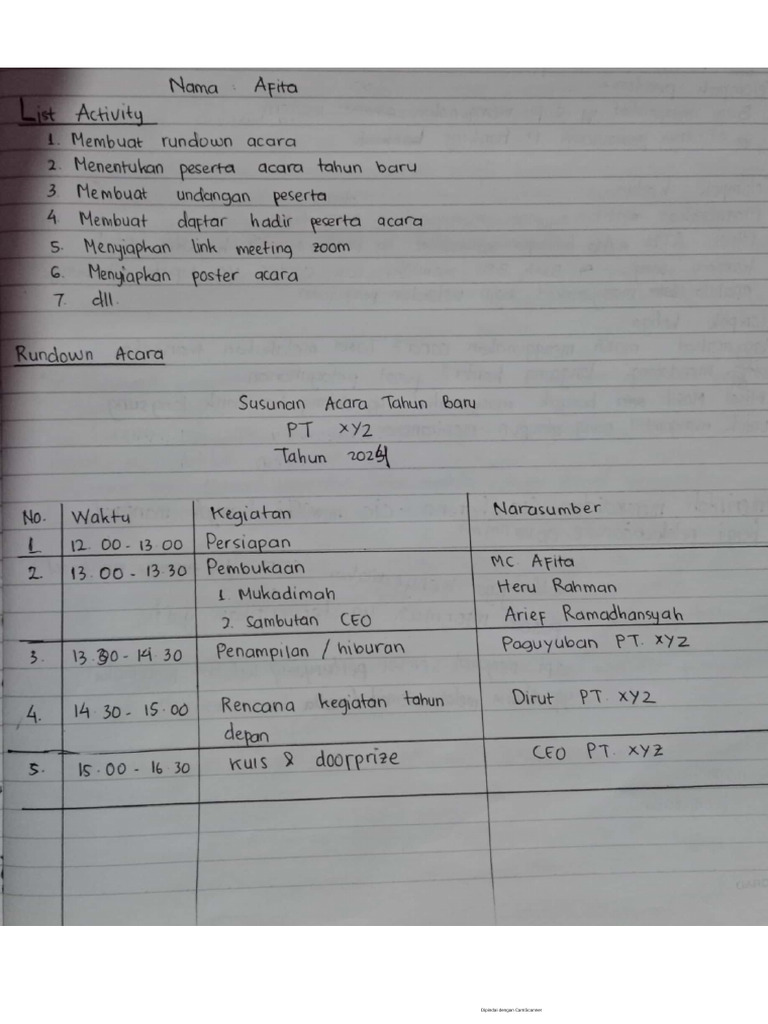 Nama : Afita
List Activity
1. Membuat rundown acara
2. Menentukan peserta acara tahun baru
3. Membuat undangan peserta
4. Membuat daftar hadir peserta acara
5. Menyiapkan link meeting zoom
6. Menyiapkan poster acara
7. dll.
Rundown Acara
Susunan Acara Tahun Baru
PT XYZ
Tahun
No. Waktu Kegiatan Narasumber
1 12.00 - 13.00 Persiapan
2. 13.00 - 13.30 Pembukaan MC Afita
1. Mukadimah Heru Rahman
2. Sambutan CEO Arief Ramadhansyah
3. 13.30 - 14.30 Penampilan / hiburan Paguyuban PT. XYZ
4. 14.30 - 15.00 Rencana kegiatan tahun Dirut PT. XYZ
depan
5. 15.00 - 16.30 Kuis & doorprize CEO PT. XYZ
Dipindai dengan CamScanner